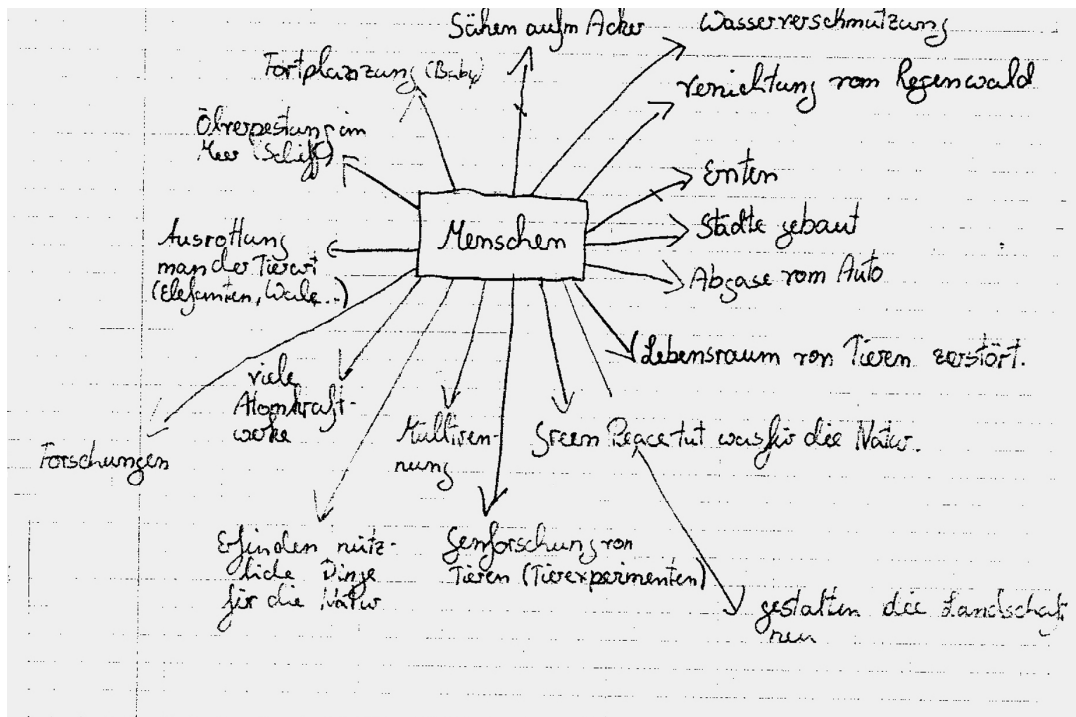 Sähen aufm Acker
Wasserverschmutzung
Fortplanzung (Baby)
Vernichtung vom Regenwald
Ölverpestung im
Meer (Schiff)
Ernten
Menschen
Städte gebaut
Ausrottung
man der Tierart
(Elefanten, Wale...)
Abgase vom Auto
Lebensraum von Tieren zerstört.
viele
Atomkraft-
werke
Mülltren-
nung
Green Peace tut was für die Natur.
Forschungen
Erfinden nütz-
liche Dinge
für die Natur
Genforschung von
Tieren (Tierexperimenten)
gestalten die Landschaft
neu